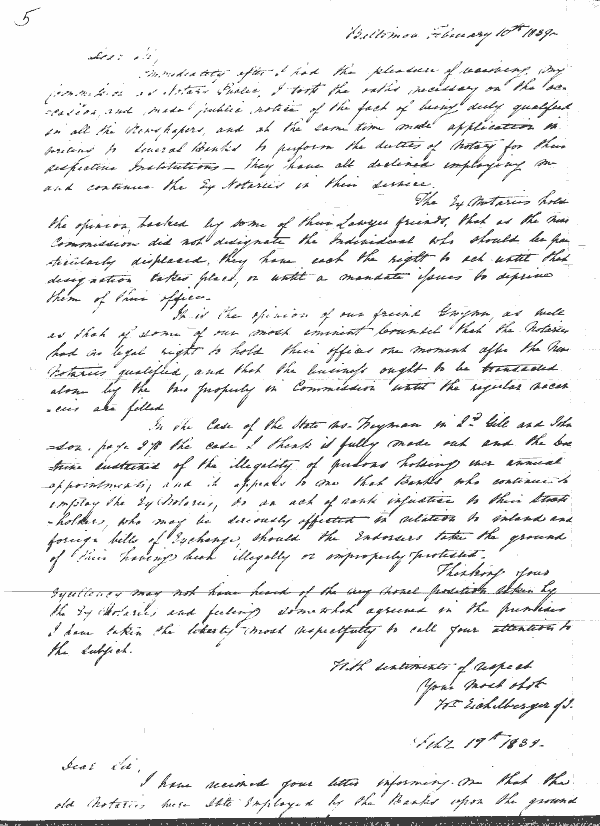 5
Baltimore February 10th 1839-
Dear Sir,
Immediately after I had the pleasure of receiving my
Commission as Notary Public, I took the oaths necessary on the oc-
-casion, and made public notice of the fact of being duly qualified
in all the Newspapers, and at the same time made application in
writing to several Banks to perform the duties of Notary for their
respective Institutions - they have all declined employing me
and continue the Ex Notaries in their service.
The Ex Notaries hold
the opinion, backed by some of their Lawyer friends, that as the new
Commission did not designate the Individual who should be par
ticularly displaced, they have each the right to act until that
designation takes place, or until a mandate issues to deprive
them of their office.
It is the opinion of our friend Gwynn, as well
as that of some of our most eminent Counsel that the Notaries
had no legal right to hold their offices one moment after the New
Notaries qualified, and that the business ought to be transacted
alone by the two properly in Commission until the regular vacan
-cies are filled
In the Case of the State vs. Wayman in 2d Gill and John
-son. page the case I think is fully made out and the doc
trine sustained of the illegality of persons holding over annual
appointments, and it appears to me that Banks who continue to
employ the Ex Notaries, do an act of rank injustice to their Stock
-holders, who may be seriously affected in relation to inland and
foreign bills of Exchange, should the Endorsers take the ground
of their having been illegally or improperly protested.
Thinking your
Excellency may not have heard of the very novel position taken by
the Ex Notaries, and feeling somewhat agrieved in the premises
I have taken the liberty most respectfully to call your attention to
the subject.
With sentiments of respect
Your Most obdt
Wm Eichelberger of J.
Feb 19th 1839-
Dear Sir,
I have received your letter informing me that the
old Notaries were still Employed by the Banks upon the ground